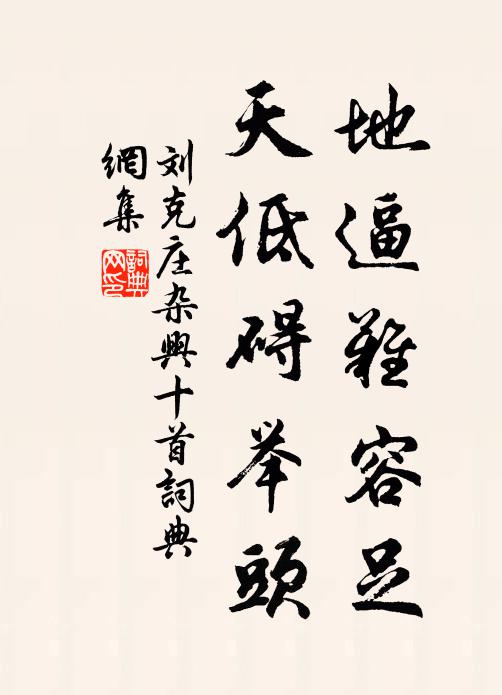 地逼难容足
天低碍举頭
刘克庄杂興十首詞典
網集
詞典
网印